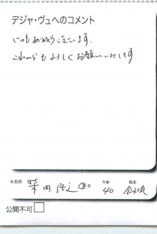 デジャ・ヴュへのコメント
いつもありがとうございます。
これからもよろしくお願いいたします
お名前 柴田 様 年齢 40 職業 会社員
公開不可